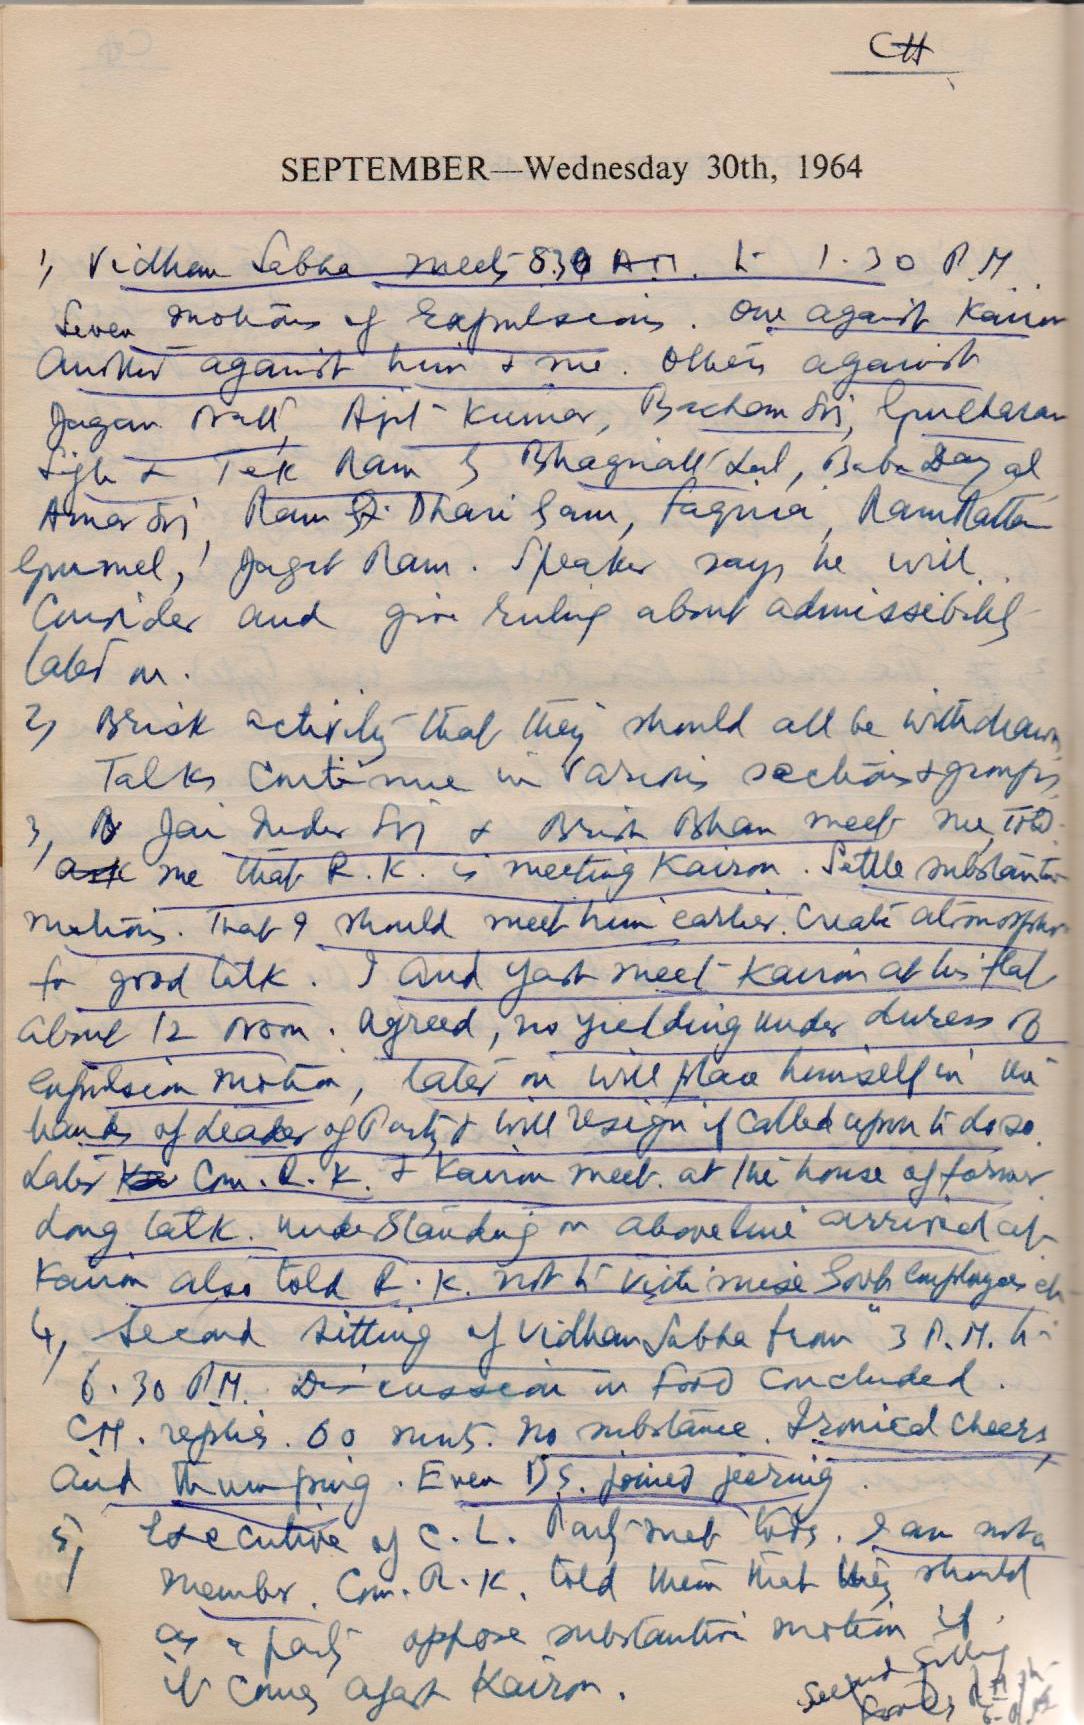 CH
SEPTEMBER—Wednesday 30th, 1964
1, Vidhan Sabha meets 8.30 A.M. to 1.30 P.M
Seven motions of Expulsions. One against Kairon
Another against him & me. Others against
Jagan Nath, Ajit Kumar, Bachan Sj, Gurcharan
Sigh & Tek Ram by Bhagnath Lal, Baba Dayal
Amar Sj, Ram Dhari Ram Rattan
Gurmel, Jagat Ram. Speaker says he will
Consider and give ruling about admissibility
later on.
2, Brisk activity that they should all be withdrawn
Talks Continue in various sections & groups
3, Jai Inder Sj & Brish Bhan meet me, told
ask me that R.K. is meeting Kairon. Settle substantive
motions. That I should meet him earlier. Create atmosphere
for good talk. I and Yash meet Kairon at his flat
about 12 noon. Agreed, no yielding under duress of
expulsion motion, later on will place himself in the
hands of leader of Party & will resign if called upon to do so.
Later Com. R.K. & Kairon meet at the house of former
Long talk. Understanding on above line arrived at
Kairon also told R.K. not to victimise Govt employees
4, Second sitting of Vidhan Sabha from 3 P.M. to
6.30 P.M. Discussion on Food Concluded.
CM. replies. 60 mnts. No substance. Ironical cheers
and thumping. Even D.S. joined jeering.
5, Executive of C.L. Party met today. I am not a
member. Com. R.K. told them that they should
as a party oppose substantive motion if
it comes agast Kairon.
Second Sitting